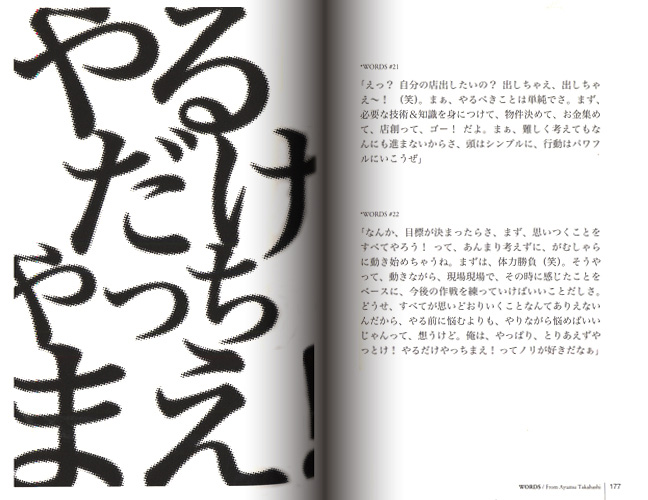 やる
だけ
やっち
まえ!
*WORDS #21
「えっ? 自分の店出したいの? 出しちゃえ、出しちゃ
え〜! (笑)。まぁ、やるべきことは単純でさ。まず、
必要な技術&知識を身につけて、物件決めて、お金集め
て、店創って、ゴー! だよ。まぁ、難しく考えてもな
んにも進まないからさ、頭はシンプルに、行動はパワフ
ルにいこうぜ」
*WORDS #22
「なんか、目標が決まったらさ、まず、思いつくことを
すべてやろう! って、あんまり考えずに、がむしゃら
に動き始めちゃうね。まずは、体力勝負(笑)。そうや
って、動きながら、現場現場で、その時に感じたことを
ベースに、今後の作戦を練っていけばいいことだしさ。
どうせ、すべてが思いどおりいくことなんてありえない
んだから、やる前に悩むよりも、やりながら悩めばいい
じゃんって、想うけど。俺は、やっぱり、とりあえずや
っとけ! やるだけやっちまえ! ってノリが好きだなぁ」
WORDS / From Ayumu Takahashi 177